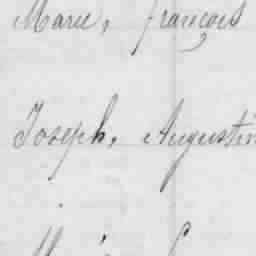 Marie, françois
Joseph, Augustin